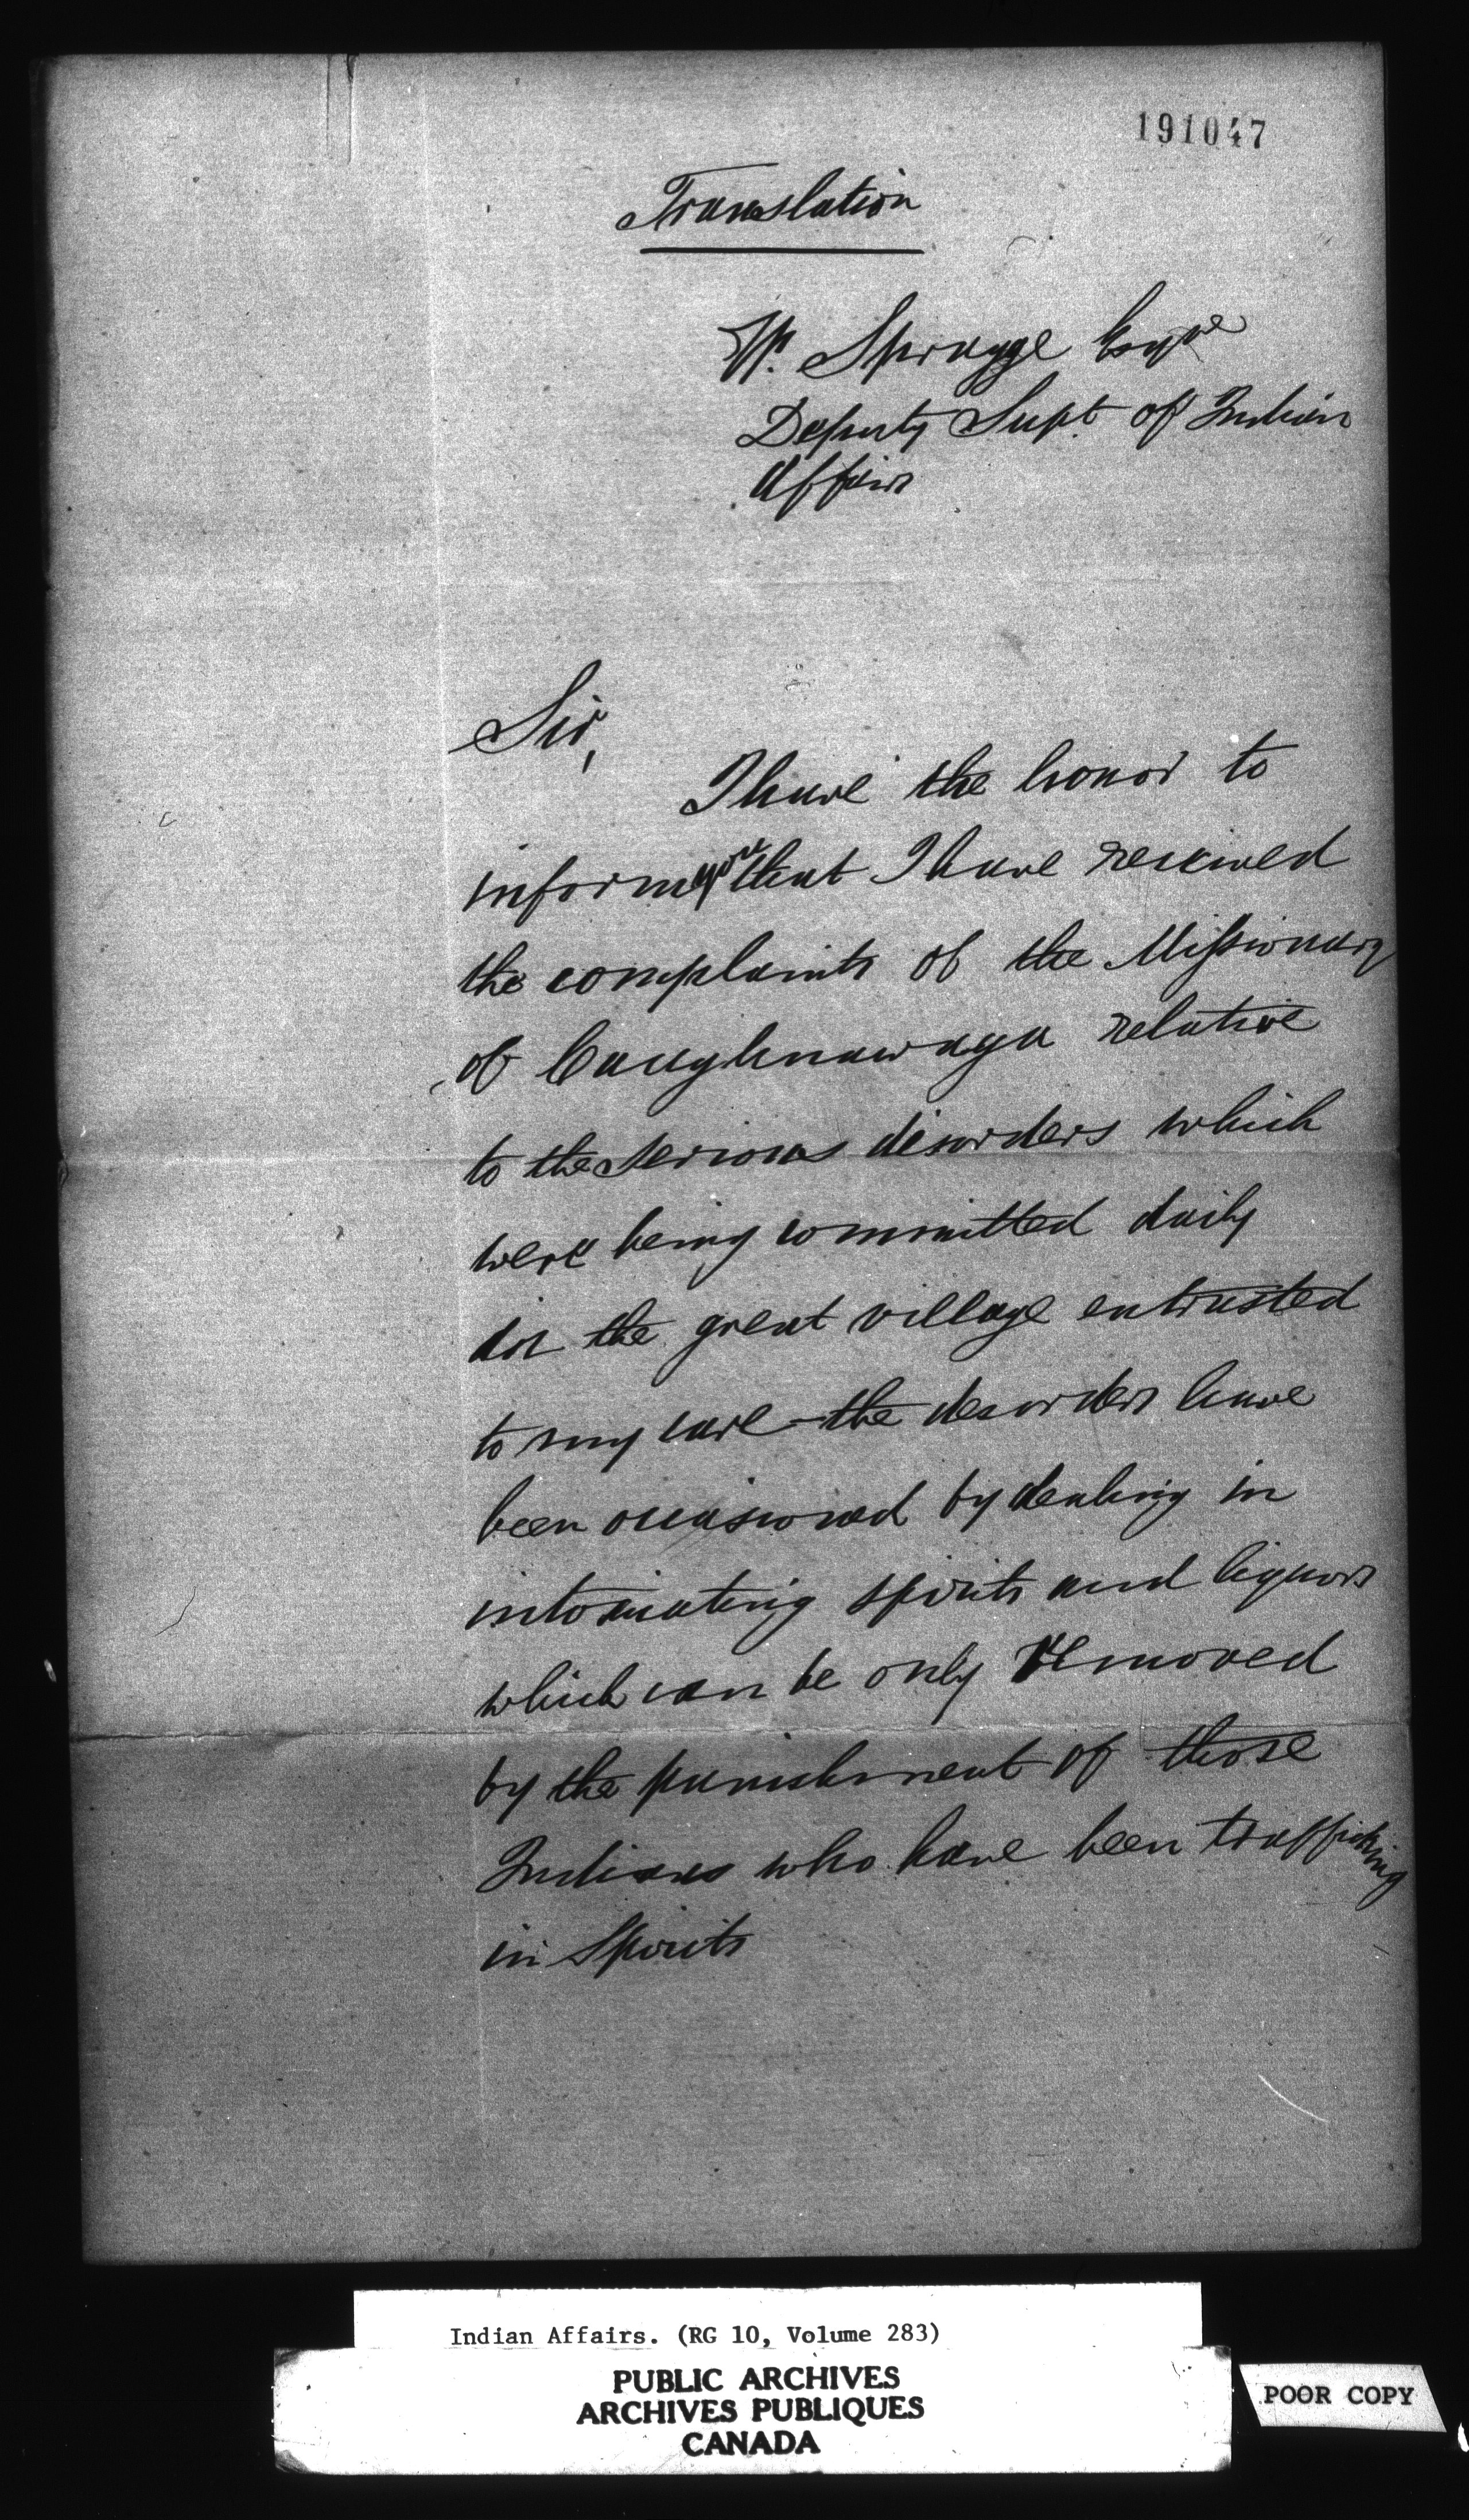 191047
Translation
W. Spragge Esqre
Deputy Supt of Indian
Affairs
Sir,
I have the honor to
inform you that I have received
the complaints of the Missionary
of Caughnawaga relative
to the serious disorders which
were being committed daily
in the great village entrusted
to my care – the disorders have
been occasioned by dealing in
intoxicating spirits and liquors
which can be only removed
by the punishment of those
Indians who have been trafficking
in Spirits
Indian Affairs. (RG 10, Volume 283)
PUBLIC ARCHIVES
ARCHIVES PUBLIQUES
CANADA
POOR COPY